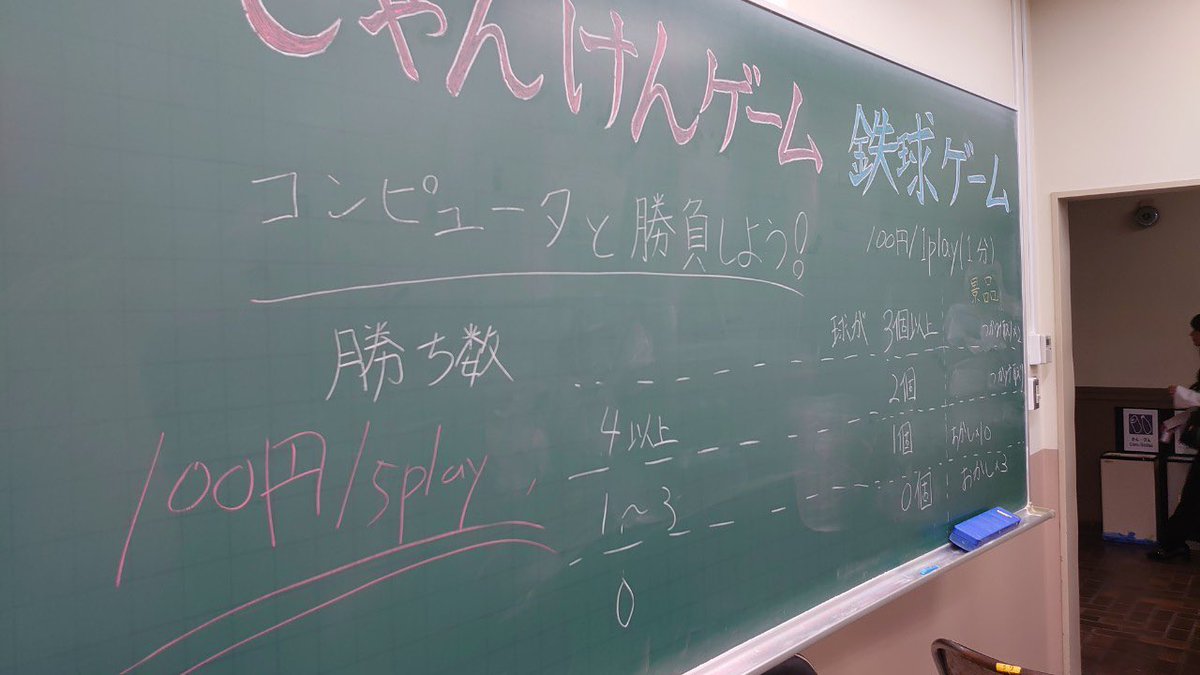 じゃんけんゲーム
コンピュータと勝負しよう!
勝ち数
100円/5play
4以上
1〜3
0
鉄球ゲーム
100円/1play(1分)
景品
球が 3個以上
2個
1個 おかし×10
0個 おかし×3